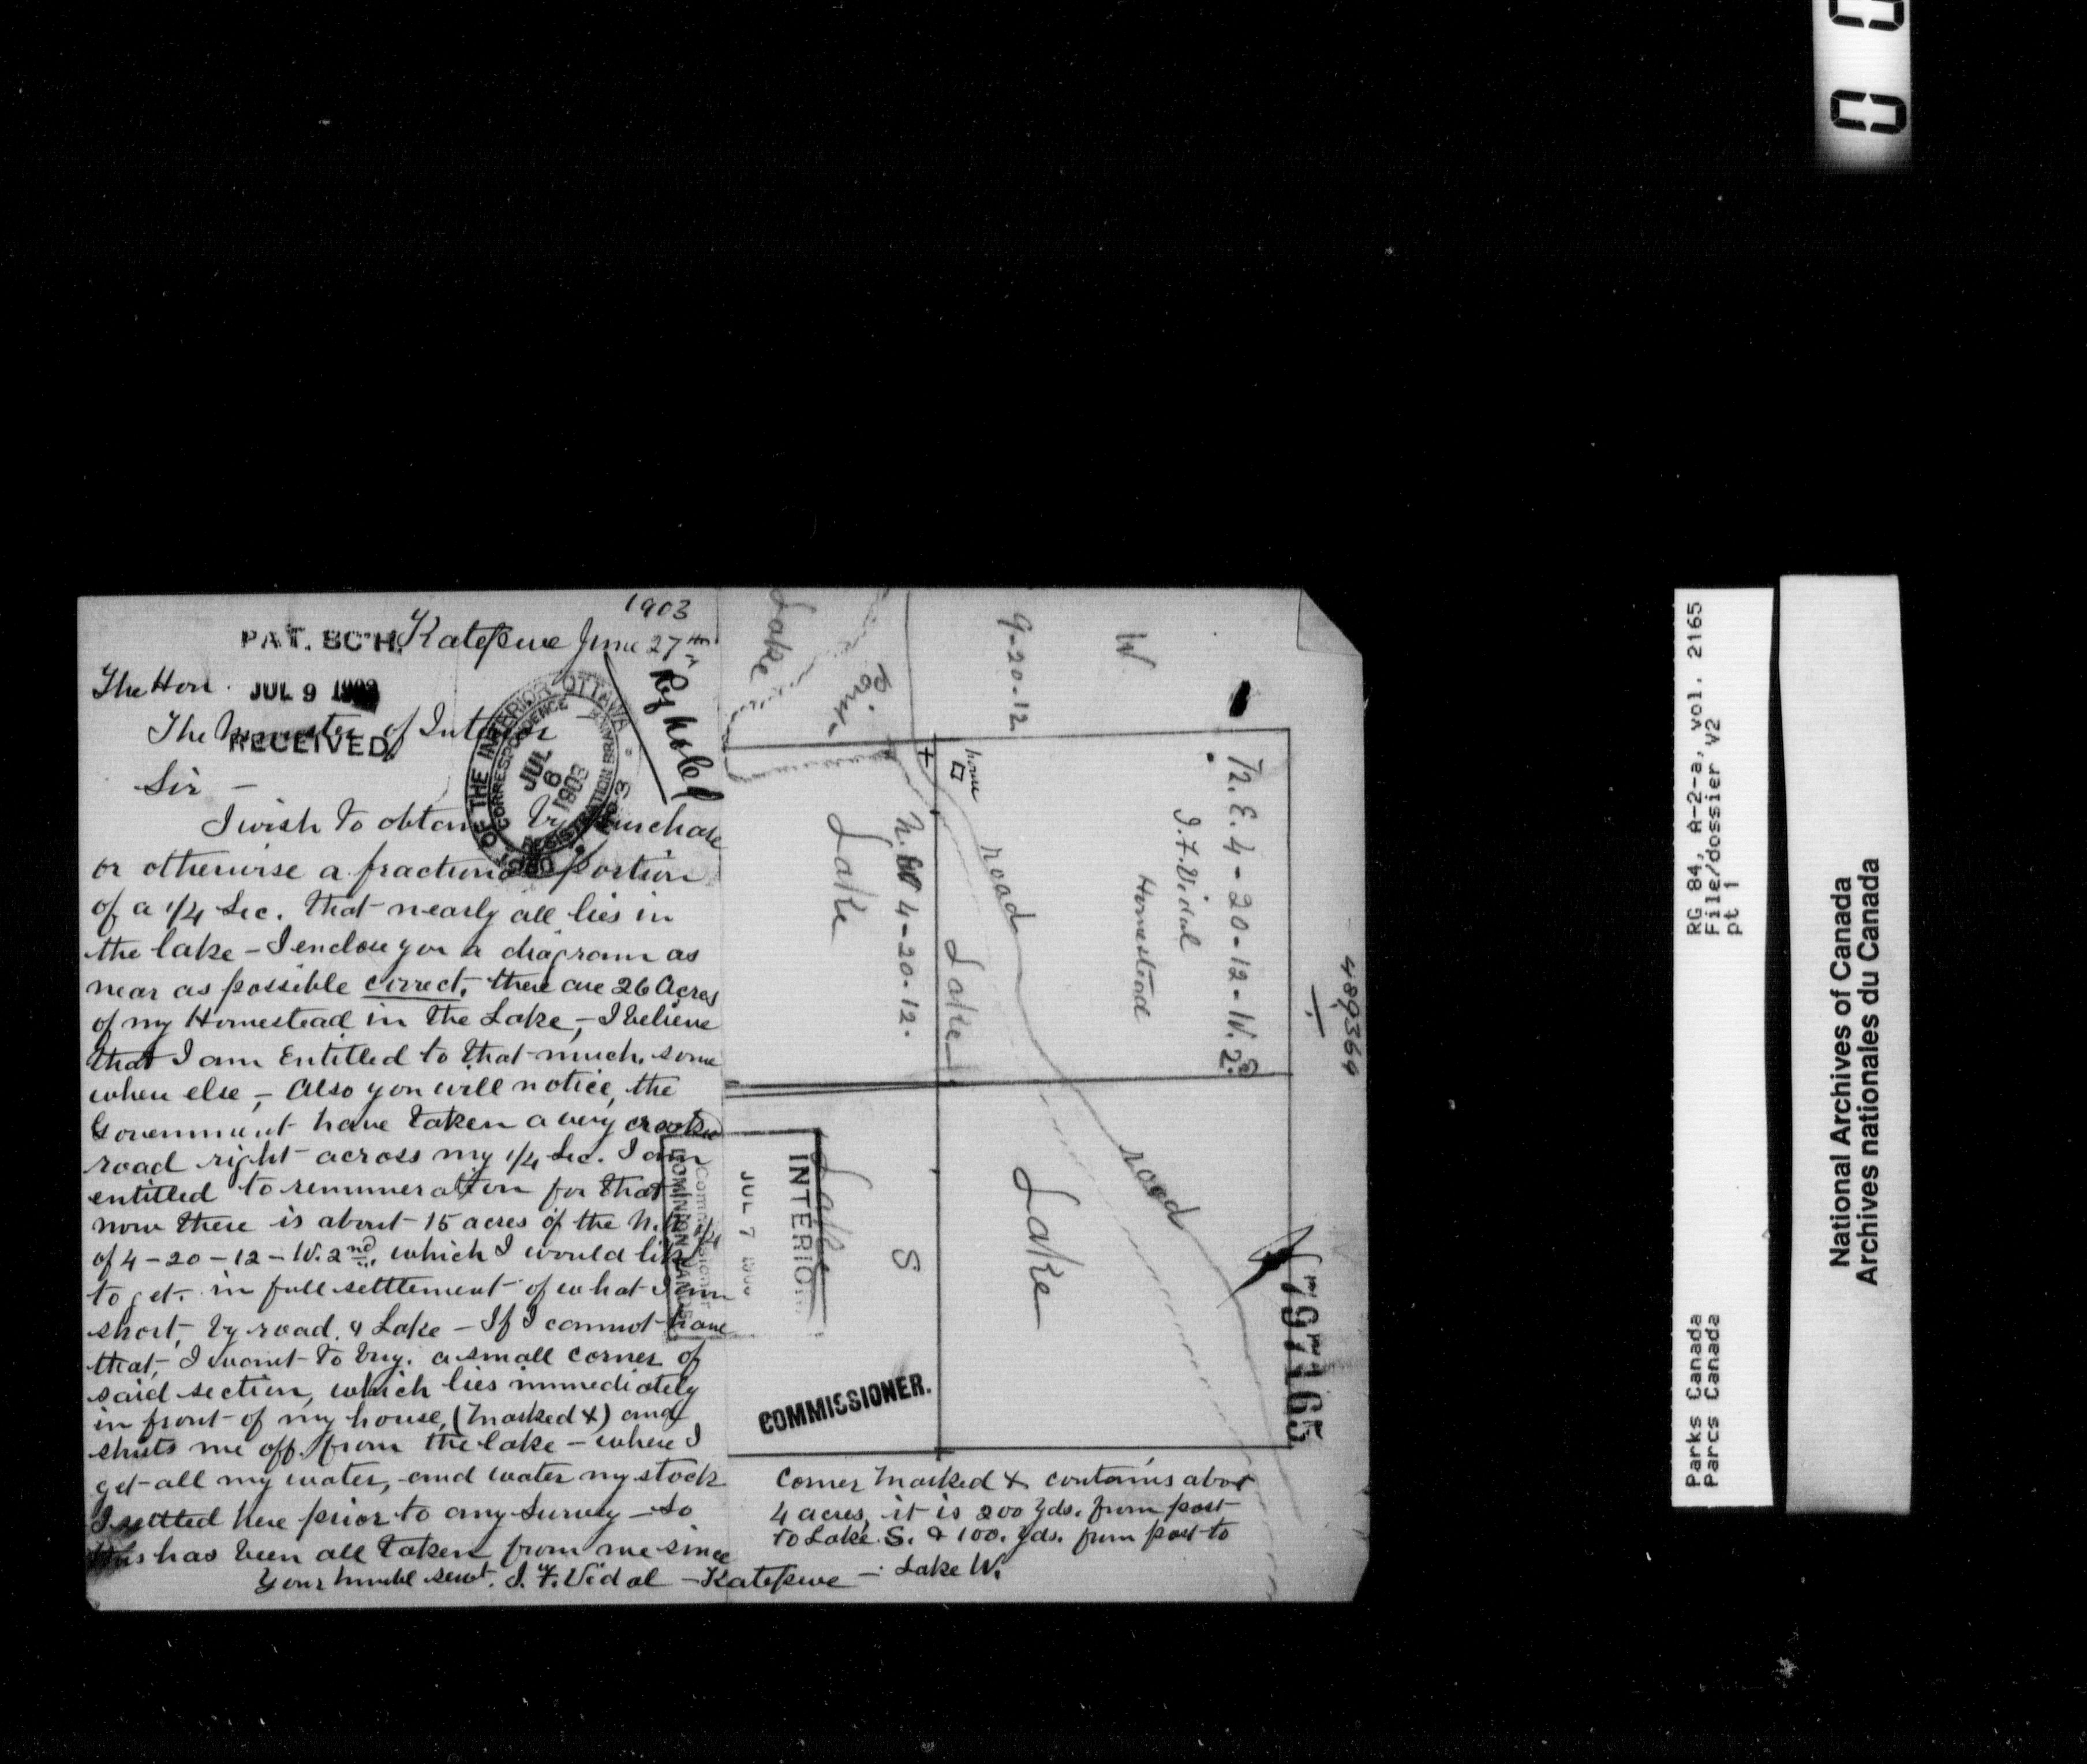 1903
PAT. BCH. Katepwe June 27th
The Hon.
JUL 9 1903
The Minister of Interior
RECEIVED.
Sir –
I wish to obtain by purchase
or otherwise a fractional portion
of a 1/4 Sec. that nearly all lies in
the lake – I enclose you a diagram as
near as possible correct, there are 26 Acres
of my Homestead in the Lake, – I believe
that I am Entitled to that much, some
where else, – Also you will notice, the
Government have taken a very crooked
road right across my 1/4 Sec. I am
entitled to remuneration for that
now there is about 15 acres of the N.W 1/4
of 4 – 20 – 12 – W. 2nd, which I would like
to get. in full settlement of what I am
short, by road, & Lake – If I cannot have
that, I want to buy. a small corner of
said section, which lies immediately
in front of my house, (marked X) and
shuts me off from the lake – where I
get all my water, and water my stock
I settled here prior to any Survey – so
this has been all taken from me since
Your humbl servt. J. F. Vidal – Katepwe –
OF THE INTERIOR OTTAWA
CORRESPONDENCE
REGISTRATION BRANCH
JUL
6
1903
Commissioner
DOMINION LANDS
JUL 7
INTERIOR
COMMISSIONER.
W
9-20-12
Lake
Point
house
road
N.E. 4-20-12-W.2nd
J.F. Vidal
Homestead
N.W 4-20-12.
Lake
Lake
road
Lake
Lake
S
489364
797165
Corner marked X contains about
4 acres, it is 200 yds. from post
to Lake S. & 100. yds. from post to
Lake W.
RG 84, A-2-a, vol. 2165
File/dossier V2
pt 1
Parks Canada
Parcs Canada
National Archives of Canada
Archives nationales du Canada